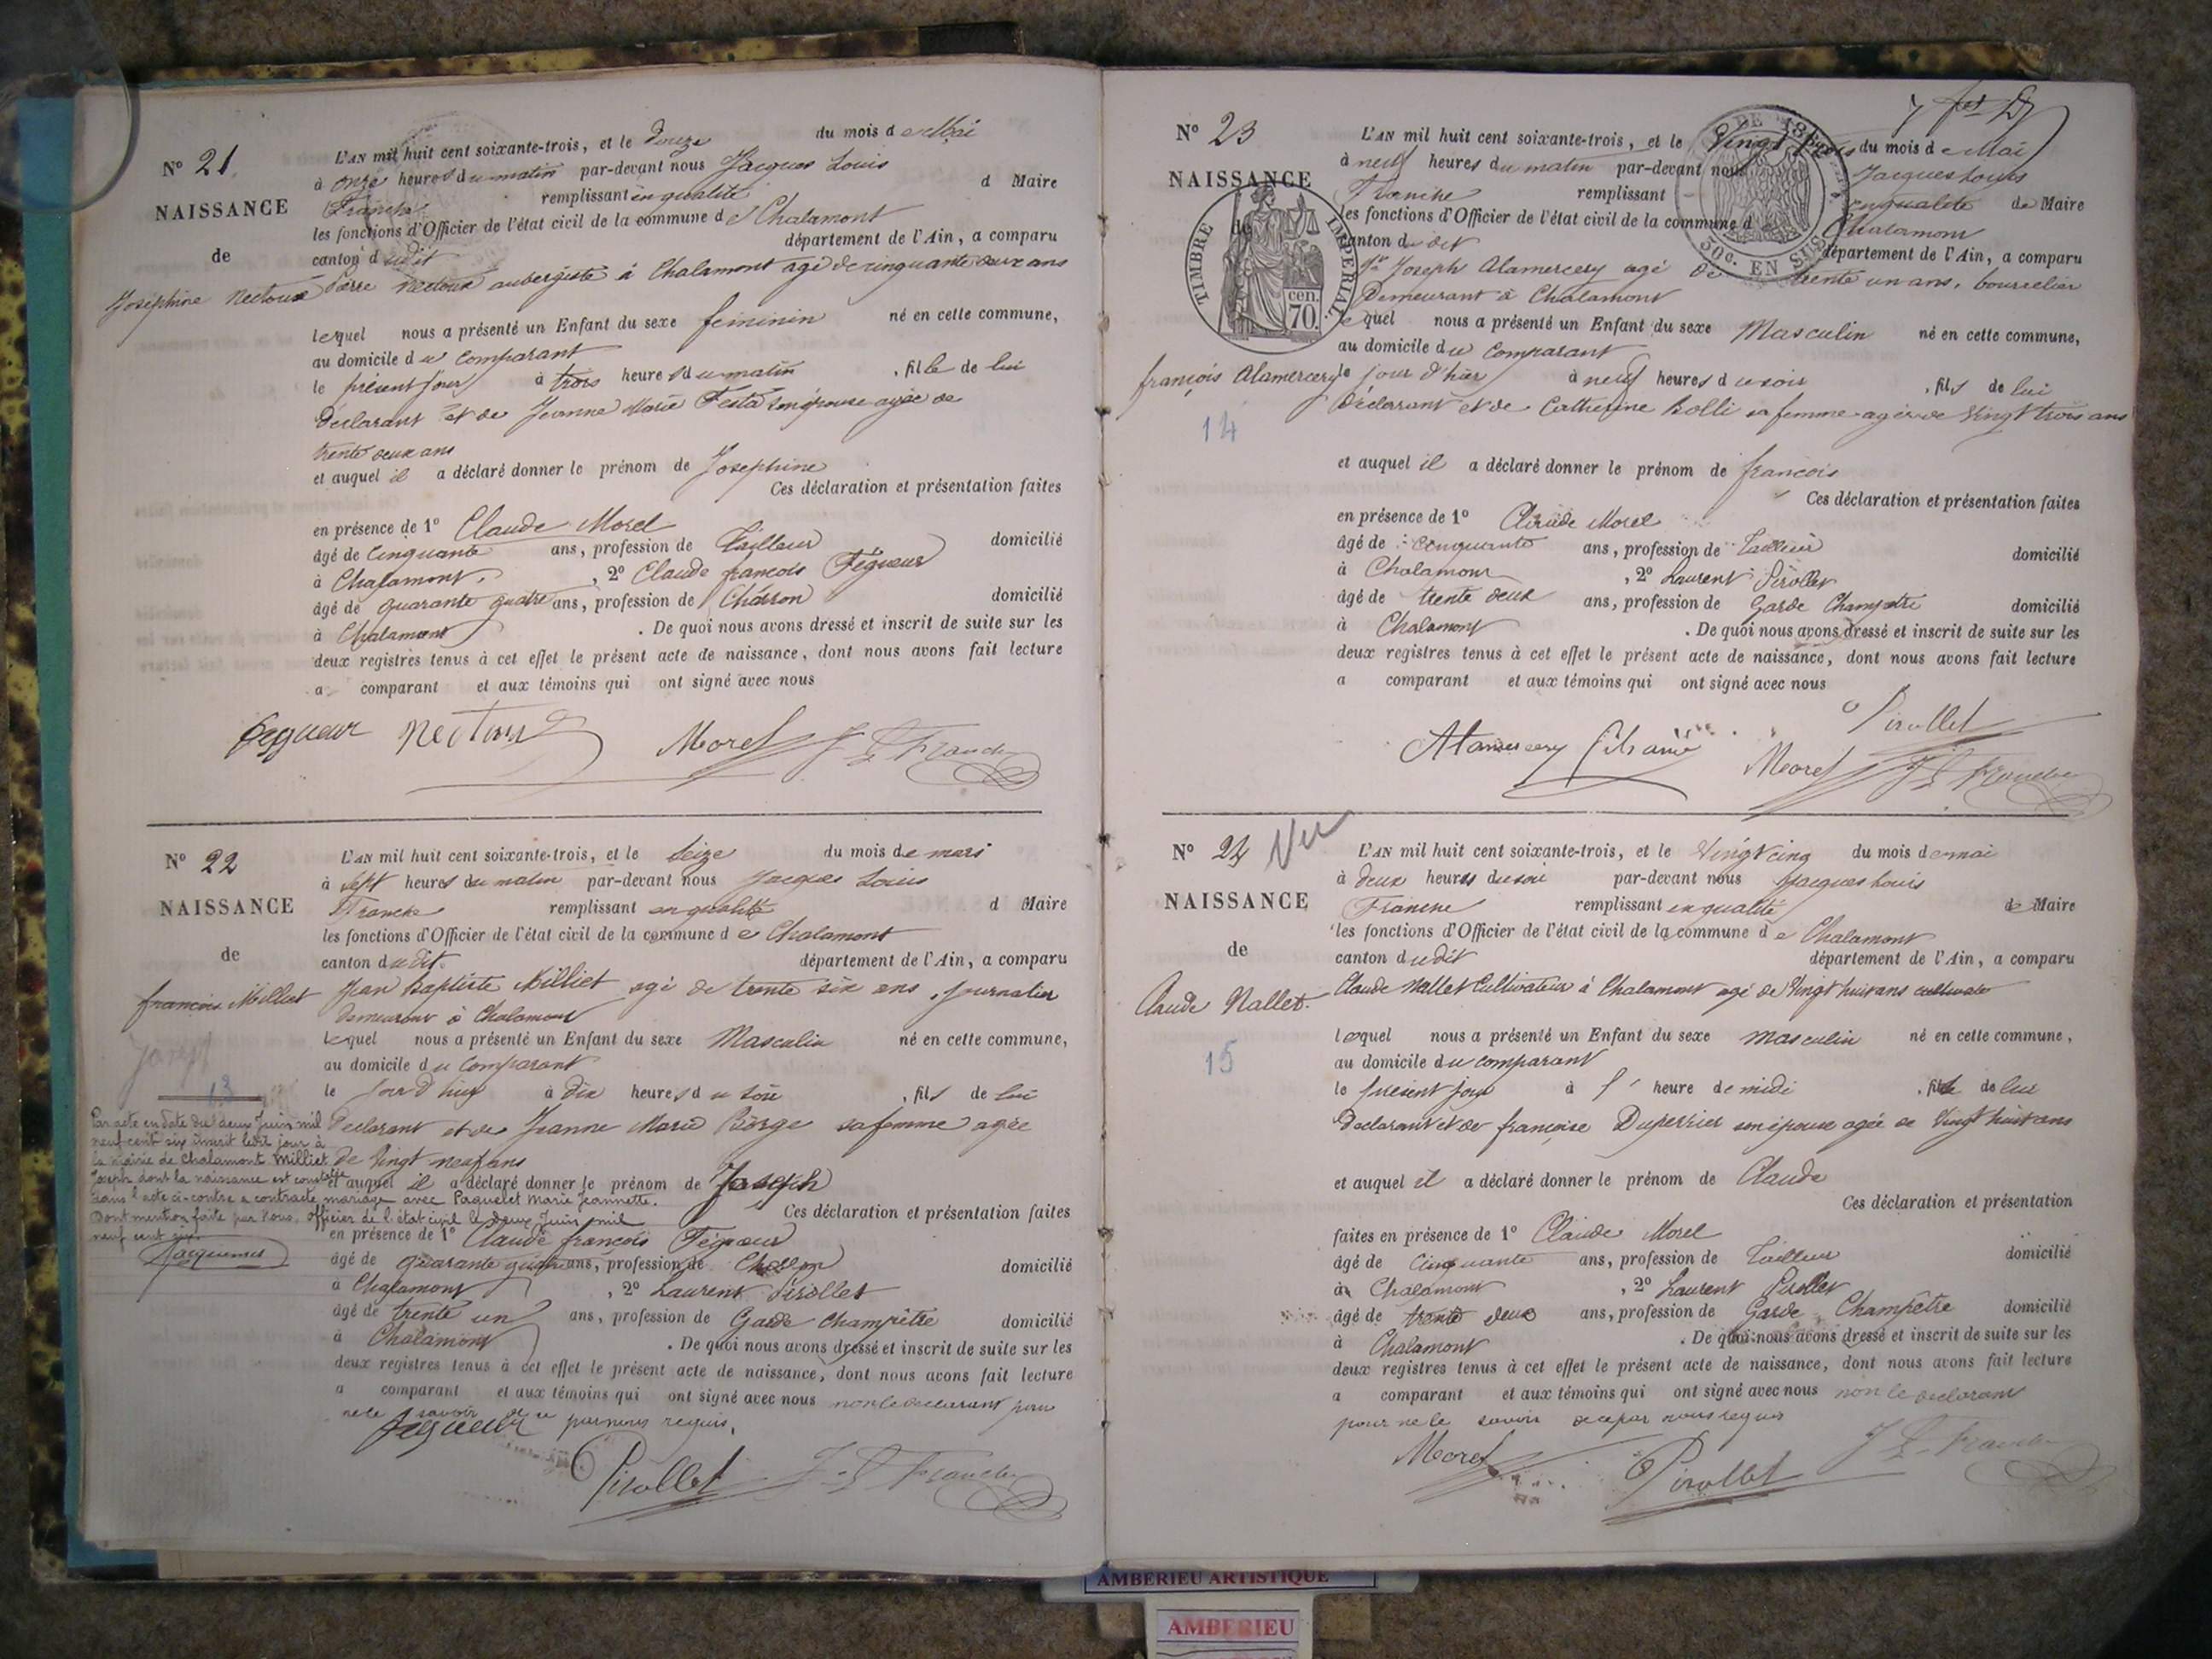 N° 21
NAISSANCE
de
Joséphine Nectoux
L'AN mil huit cent soixante-trois, et le Douze du mois de Mai
à onze heures du matin par-devant nous Jacques Louis
Franche remplissant en qualité d Maire
les fonctions d'Officier de l'état civil de la commune de Chalamont
canton dudit département de l'Ain, a comparu
Pierre Nectoux aubergiste à Chalamont agé de cinquante deux ans
lequel nous a présenté un Enfant du sexe feminin né en cette commune,
au domicile du comparant
le présent jour à trois heures du matin , fille de lui
Déclarant et de Jeanne Marie Festa son épouse agée de
trente deux ans
et auquel il a déclaré donner le prénom de Josephine
Ces déclaration et présentation faites
en présence de 1° Claude Morel
âgé de Cinquante ans, profession de Tailleur domicilié
à Chalamont , 2° Claude francois Fégueur
âgé de quarante quatre ans, profession de Charron domicilié
à Chalamont . De quoi nous avons dressé et inscrit de suite sur les
deux registres tenus à cet effet le présent acte de naissance, dont nous avons fait lecture
a comparant et aux témoins qui ont signé avec nous
Fegueur Nectoux Morel J L Franche
N° 22
NAISSANCE
de
francois Milliet
Joseph
13
L'AN mil huit cent soixante-trois, et le Seize du mois de mars
à Sept heures du matin par-devant nous Jacques Louis
Franche remplissant en qualité d Maire
les fonctions d'Officier de l'état civil de la commune de Chalamont
canton dudit département de l'Ain, a comparu
Jean Baptiste Milliet agé de trente six ans, journalier
demeurant à Chalamont
lequel nous a présenté un Enfant du sexe Masculin né en cette commune,
au domicile du Comparant
le jour d'hier à dix heures du soir , fils de lui
Déclarant et de Jeanne Marie Borge sa femme agée
de Vingt neuf ans
et auquel il a déclaré donner le prénom de Joseph
Ces déclaration et présentation faites
Par acte en date du deux Juin mil
neuf cent six inscrit le dit jour à
la mairie de Chalamont Milliet
Joseph dont la naissance est constatée
dans l'acte ci-contre a contracté mariage avec Paquelet Marie Jeannette.
Dont mention faite par Nous, Officier de l'état civil le deux Juin mil
neuf cent six.
Jacquemet
en présence de 1° Claude françois Fégueur
âgé de quarante quatre ans, profession de Charron domicilié
à Chalamont , 2° Laurent Pirollet
âgé de trente un ans, profession de Garde Champêtre domicilié
à Chalamont . De quoi nous avons dressé et inscrit de suite sur les
deux registres tenus à cet effet le présent acte de naissance, dont nous avons fait lecture
a comparant et aux témoins qui ont signé avec nous non le declarant pour
ne le savoir de ce par nous requis.
Fegueur Pirollet J L Franche
N° 23
NAISSANCE
de
françois Alamercery
14
TIMBRE IMPERIAL
70 cen.
50c. EN SUS
L'AN mil huit cent soixante-trois, et le Vingt trois du mois de Mai
à neuf heures du matin par-devant nous Jacques Louis
Franche remplissant en qualité de Maire
les fonctions d'Officier de l'état civil de la commune d Chalamont
canton dudit département de l'Ain, a comparu
Sr Joseph Alamercery agé de trente un ans, bourrelier
Demeurant à Chalamont
lequel nous a présenté un Enfant du sexe Masculin né en cette commune,
au domicile du Comparant
le jour d'hier à neuf heures du soir , fils de lui
Déclarant et de Catherine Bolli sa femme agée de Vingt trois ans
et auquel il a déclaré donner le prénom de francois
Ces déclaration et présentation faites
en présence de 1° Claude Morel
âgé de Cinquante ans, profession de Tailleur domicilié
à Chalamont , 2° Laurent Pirollet
âgé de trente deux ans, profession de Garde Champetre domicilié
à Chalamont . De quoi nous avons dressé et inscrit de suite sur les
deux registres tenus à cet effet le présent acte de naissance, dont nous avons fait lecture
a comparant et aux témoins qui ont signé avec nous
Pirollet
Alamercery Morel J L Franche
N° 24 Vu
NAISSANCE
de
Claude Nallet
15
L'AN mil huit cent soixante-trois, et le Vingt cinq du mois de mai
à deux heures du soir par-devant nous Jacques Louis
Franche remplissant en qualité de Maire
les fonctions d'Officier de l'état civil de la commune de Chalamont
canton dudit département de l'Ain, a comparu
Claude Nallet Cultivateur à Chalamont agé de Vingt huit ans
lequel nous a présenté un Enfant du sexe masculin né en cette commune,
au domicile du comparant
le présent jour à 1 heure de midi , fils de lui
Déclarant et de françoise Duperrier son épouse agée de Vingt huit ans
et auquel il a déclaré donner le prénom de Claude
Ces déclaration et présentation
faites en présence de 1° Claude Morel
âgé de Cinquante ans, profession de Tailleur domicilié
à Chalamont , 2° Laurent Pirollet
âgé de trente deux ans, profession de Garde Champêtre domicilié
à Chalamont . De quoi nous avons dressé et inscrit de suite sur les
deux registres tenus à cet effet le présent acte de naissance, dont nous avons fait lecture
a comparant et aux témoins qui ont signé avec nous non le declarant
pour ne le savoir de ce par nous requis
Morel Pirollet J L Franche
AMBERIEU ARTISTIQUE
AMBERIEU